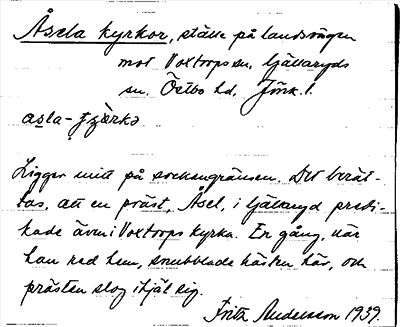 Åsela kyrkor, ställe på landsvägen
mot Voxtorps sn, Gällaryds
sn. Östbo hd, Jönk. l.
Ligger mitt på sockengränsen. Det berät-
tas, att en präst, Åsel, i Gällaryd predi-
kade även i Voxtorps kyrka. En gång, när
han red hem, snubblade hästen här, och
prästen slog ihjäl sig.
Frith Andersson 1939.